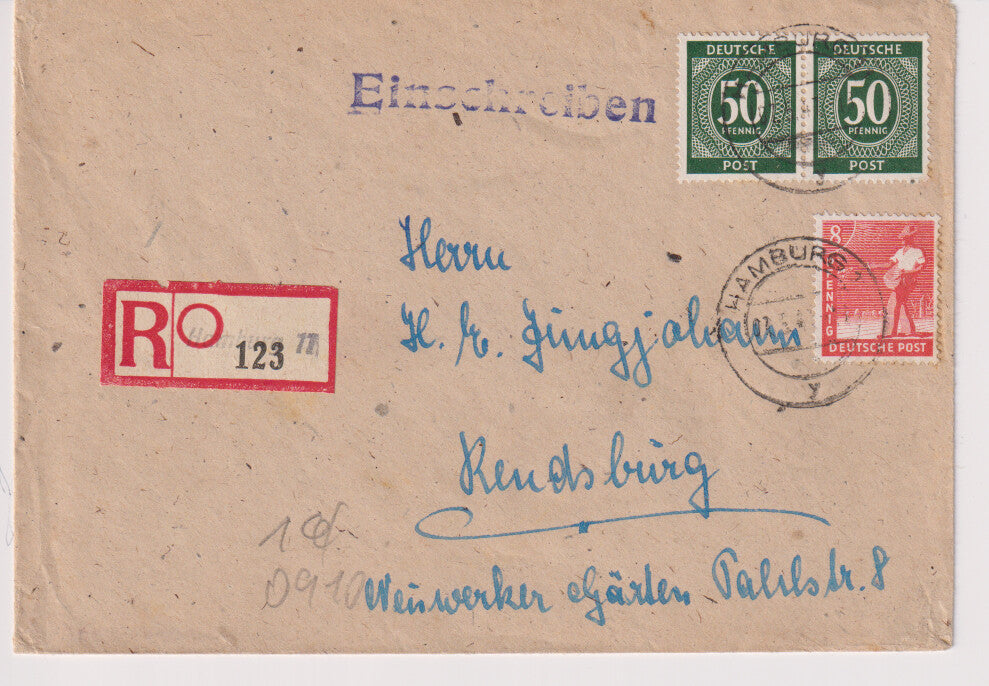 Einschreiben
DEUTSCHE
50
PFENNIG
POST
DEUTSCHE
50
PFENNIG
POST
8
PFENNIG
DEUTSCHE POST
HAMBURG
y
R
123
Herrn
H. E. Jungjohann
Rendsburg
Neuwerker Gärten Pahlstr. 8
0910